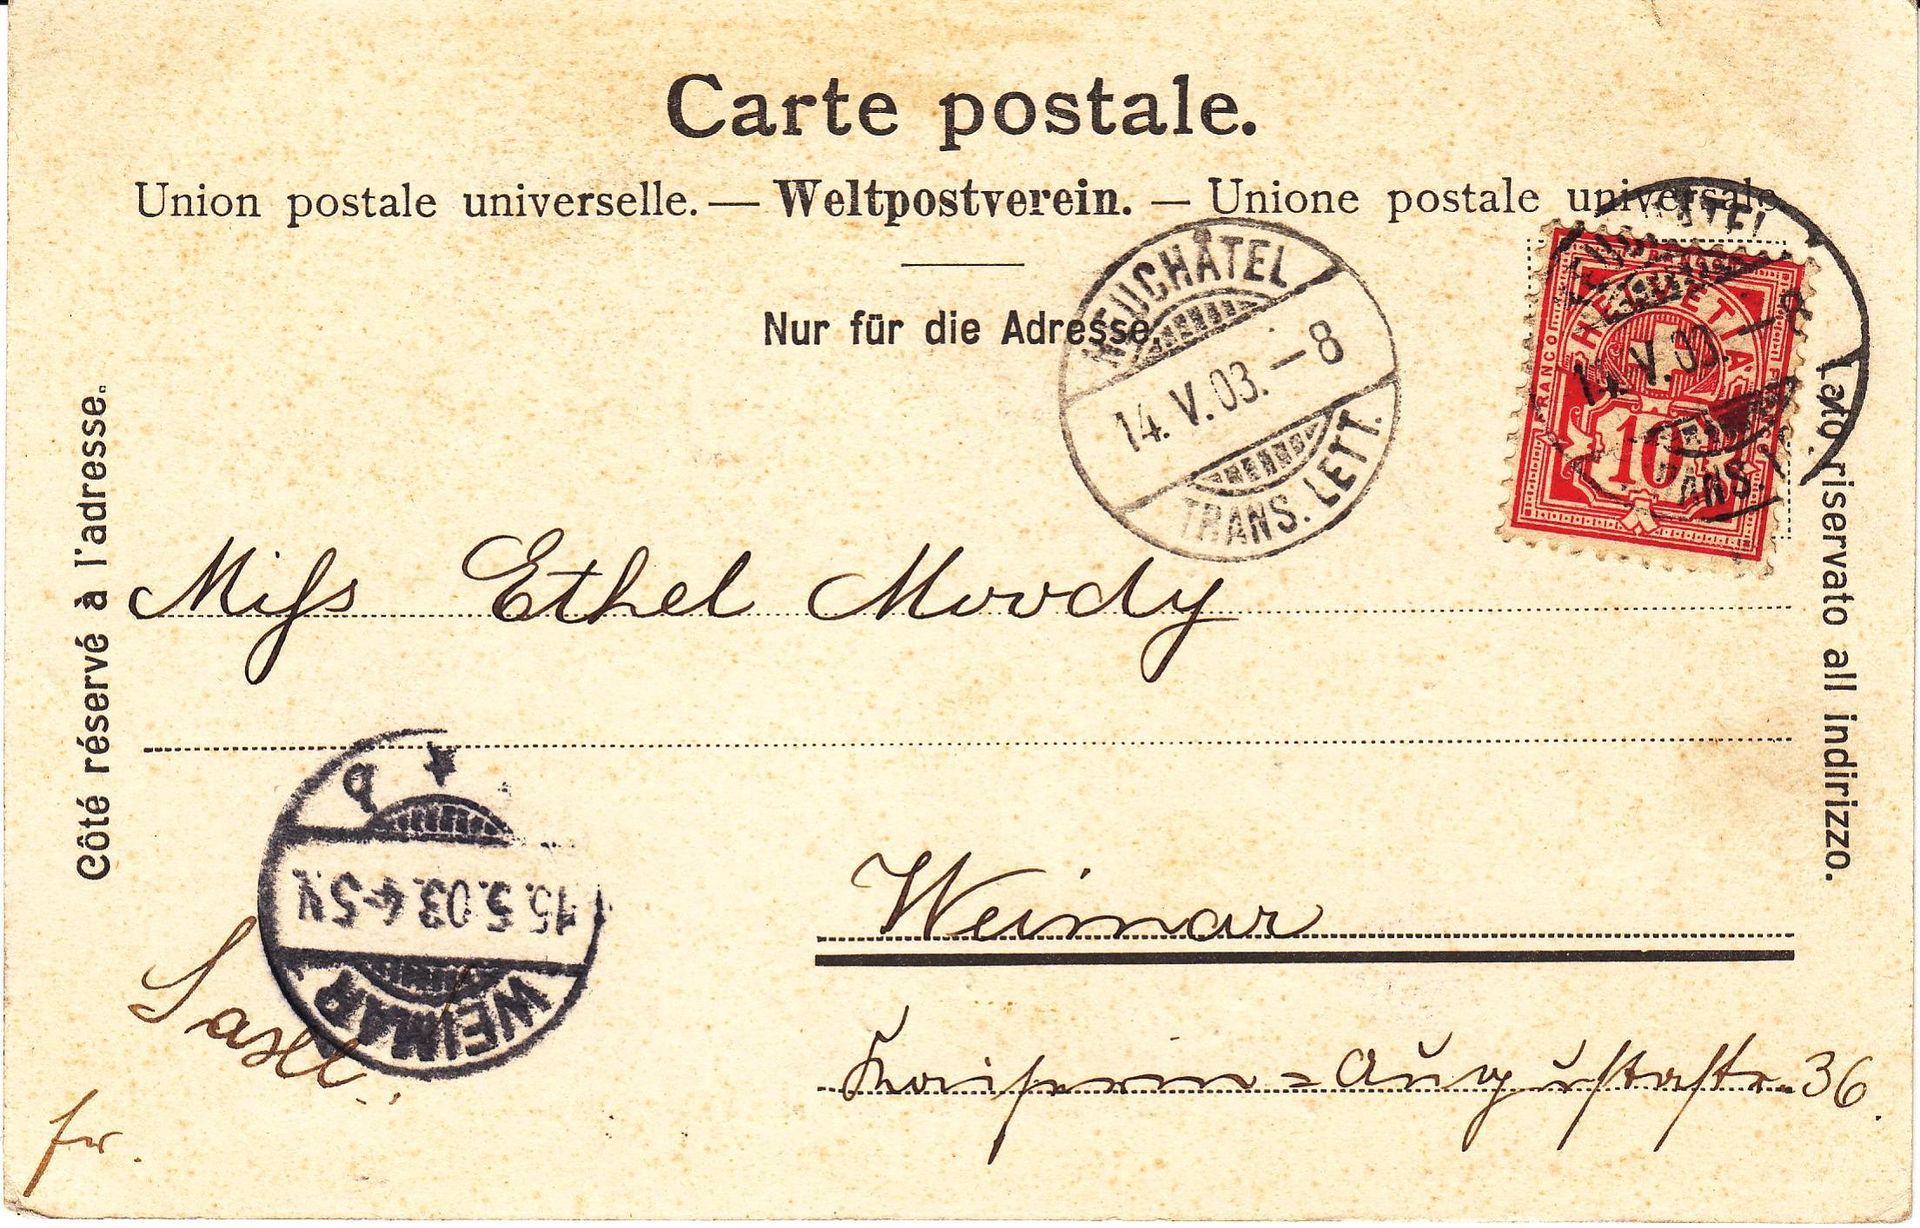 Carte postale.
Union postale universelle. — Weltpostverein. — Unione postale universale
Nur für die Adresse
NEUCHÂTEL
14. V. 03. – 8
TRANS. LETT.
HELVETIA
FRANCO
10
14. V. 03. – 8
Côté réservé à l'adresse.
Lato riservato all indirizzo.
Miss Ethel Moody
Weimar
Kaiserin=Augustastr. 36.
WEIMAR
15.5.03. 4-5 V.
fr.